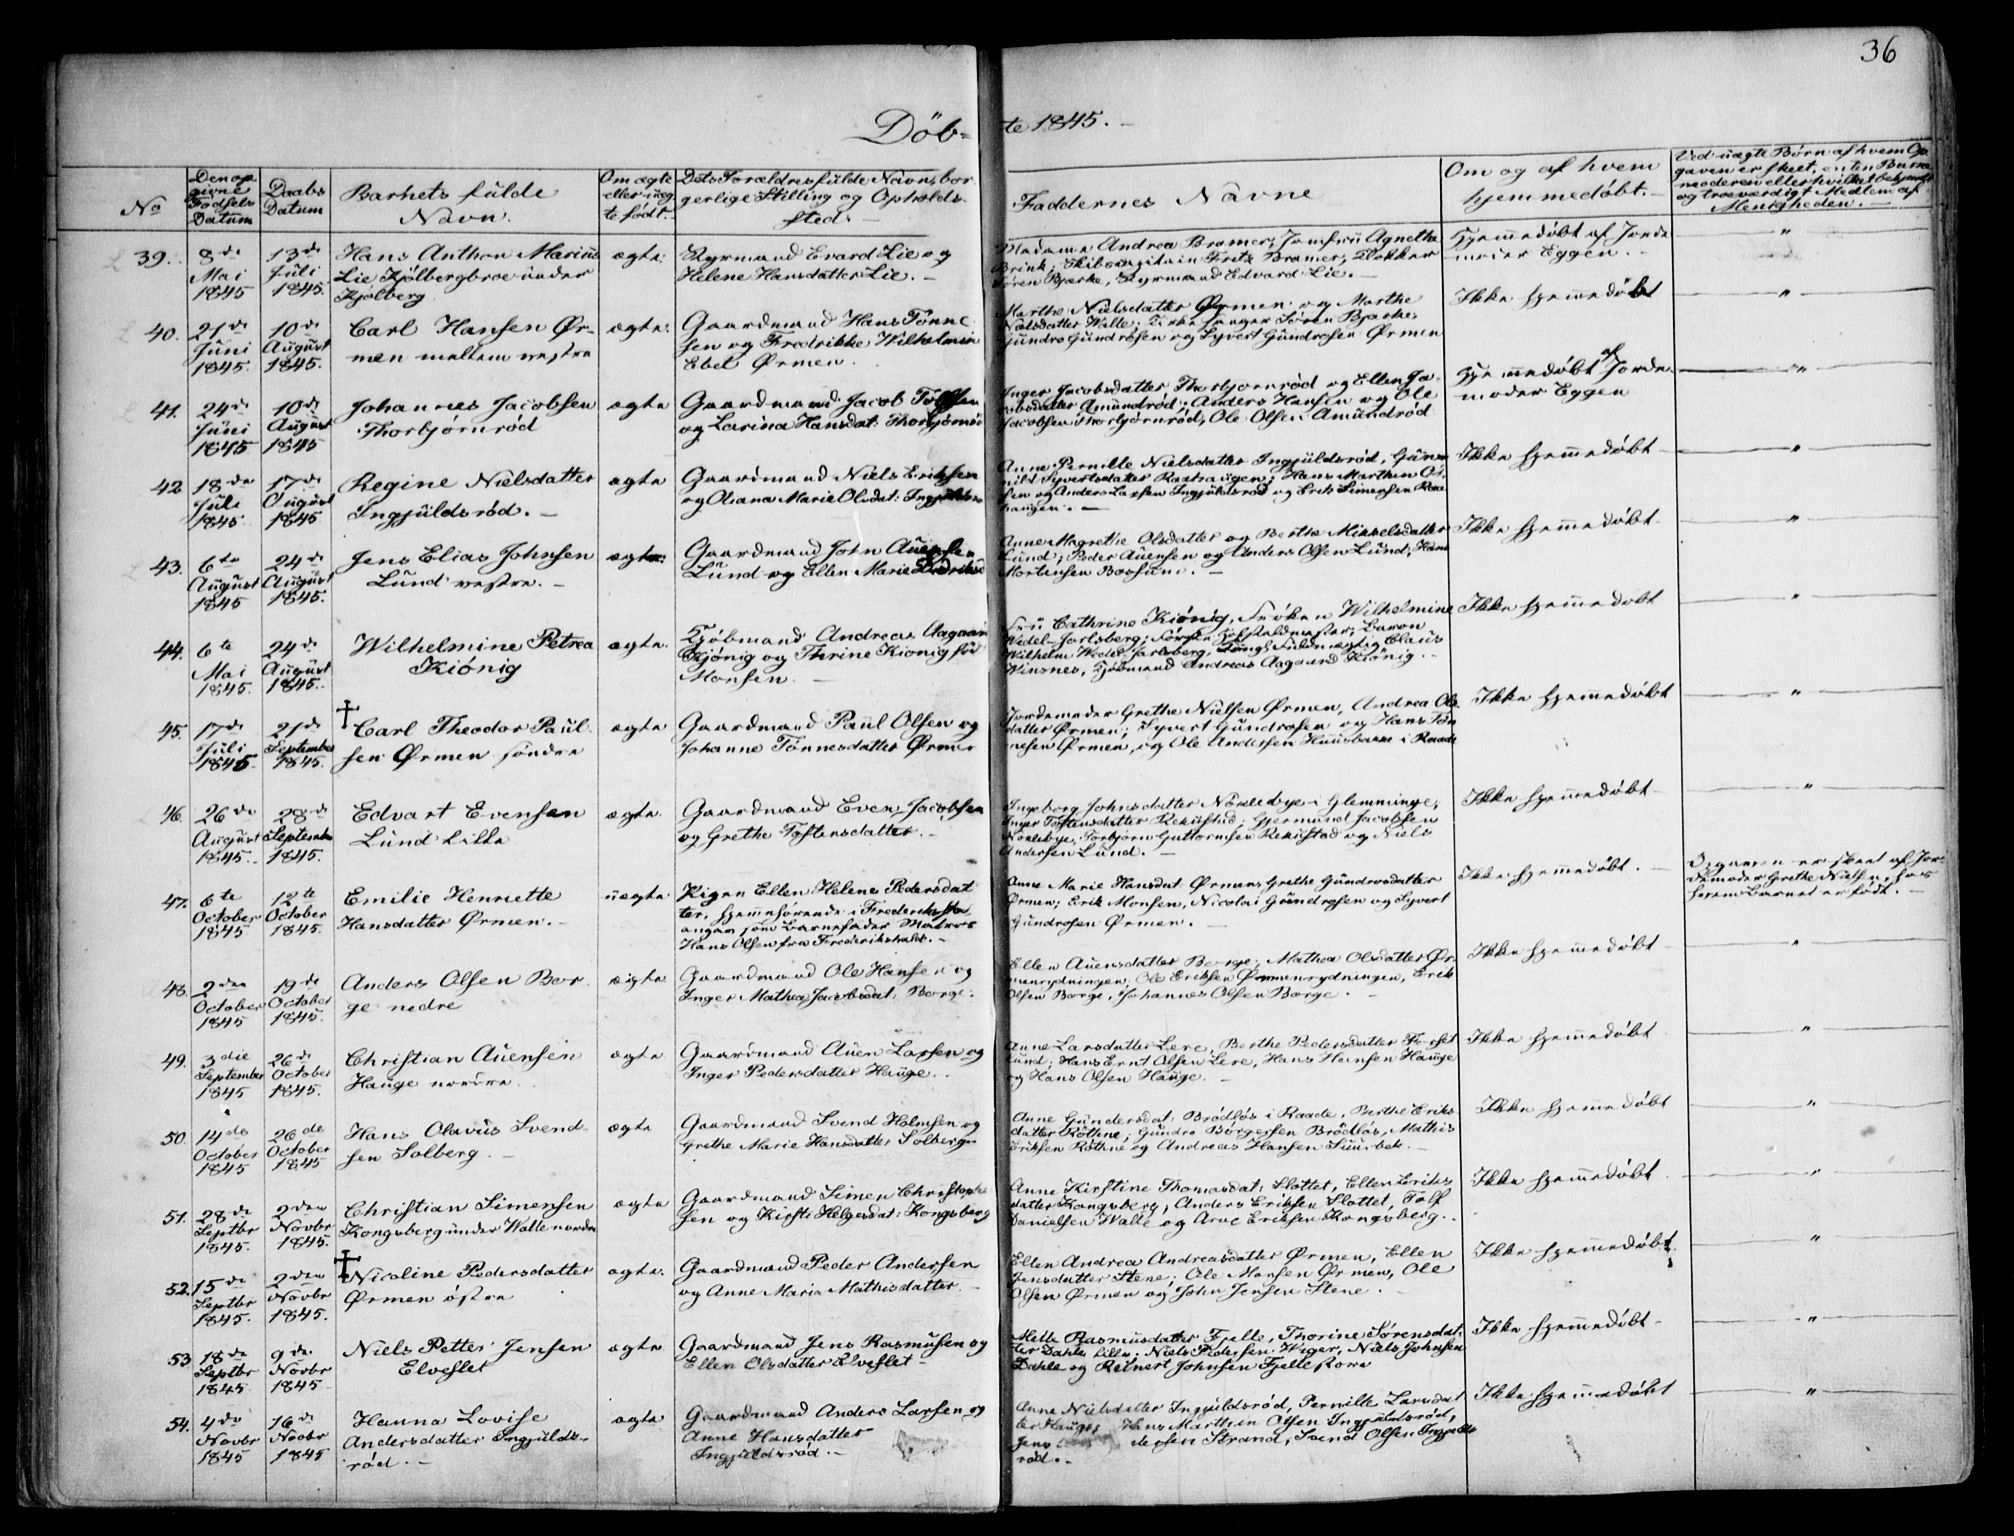 36
Döb- te 1845.
No
Den op-
givne
Födsels
Datum
Daabs
Datum
Barnets fulde
Navn.
Om ægte
eller uæg-
te født.
Dets Forældres fulde Navn, bor-
gerlige Stilling og Opholds-
sted.
Faddernes Navne
Om og af hvem
hjemmedøbt.
Ved uægte Børn af hvem Op-
gaven er skeet, enten Barne-
moderen eller hvilket bekjendt
og troeværdigt Medlem af
Menigheden.
39. 8de
Mai
1845
13de
Juli
1845.
Hans Anthon Marius
Lie Kjølbergbroe under
Kjølberg
ægte.
Styrmand Evard Lie og
Helene Hansdatter Lie.
Madame Andrea Bramer, Jomfru Agnethe
Brink, Skibscapitain Fritz Bramer, Klokker
Søren Bjerke, Styrmand Edvard Lie.
Hjemmedøbt af Jorde-
moder Eggen.
"
40. 21de
Juni
1845.
10de
August
1845.
Carl Hansen Ør-
men mellem vestre
ægte.
Gaardmand Hans Tønne-
sen og Fredrikke Wilhelmin
Ebel Ørmen.
Marthe Nielsdatter Ørmen og Marthe
Nielsdatter Walle, Kirkesanger Søren Bjerke,
Gundro Gundrosen og Syvert Gundrosen Ørmen
Ikke hjemmedøbt
"
41. 24de
Juni
1845
10de
August
1845
Johannes Jacobsen
Thorbjørnrød
ægte
Gaardmand Jacob Tolfsen
og Larina Hansdat: Thorbjørnrø
Inger Jacobsdatter Thorbjørnrød og Ellen Ja-
cobsdatter Amundrød; Anders Hansen og Ole
Jacobsen Thorbjørnrød, Ole Olsen Amundrød
Hjemmedøbt af Jorde-
moder Eggen
"
42 18de
Juli
1845
17de
August
1845
Regine Nielsdatter
Ingjuldsrød.
ægte
Gaardmand Niels Eriksen
og Oliana Marie Olsdat: Ingjuldsrø
Anne Pernille Nielsdatter Ingjuldsrød, Gun-
nild Syvertsdatter Raxhaugen; Hans Marthin Ol-
sen og Anders Larsen Ingjuldsrød og Erik Simensen Rax-
haugen.
Ikke hjemmedøbt
"
43. 6te
August
1845
24de
August
1845.
Jens Elias Johnsen
Lund vestre.
ægte:
Gaardmand John Auensen
Lund og Ellen Marie Didriksd
Anne Magrethe Olsdatter og Berthe Mikkelsdatter
Lund; Peder Auensen og Anders Olsen Lund, Hans
Mortensen Bossum.
Ikke hjemmedøbt
"
44. 6te
Mai
1845.
24de
August
1845.
Wilhelmine Petrea
Kiönig
ægte.
Kjöbmand Andreas Aagaard
Kjönig og Thrine Kionig fød
Monsen.
Fru Cathrine Kiönig, Fröken Wilhelmine
Wedel-Jarlsberg; Baron
Wilhelm Wedel Jarlsberg, Claus
Winsnes, Kjöbmand Andreas Aagaard Kiönig.
Ikke hjemmedøbt
"
45. 17de
Juli
1845
21de
September
1845.
† Carl Theodor Paul-
sen Ørmen søndre
ægte
Gaardmand Paul Olsen og
Johanne Tønnesdatter Ørmer
Jordemoder Grethe Nielsen Ørmen, Andrea Ols-
datter Ørmen; Syvert Gundrosen og Hans Tøn-
nesen Ørmen, og Ole Andersen Huusbarne i Raade
Ikke hjemmedøbt
"
46. 26de
August
1845.
28de
September
1845.
Edvart Evensen
Lund lille
ægte.
Gaardmand Even Jacobsen
og Grethe Tostensdatter.
Ingeborg Johnsdatter Nordebye i Glemminge,
Inger Tostensdatter Rekustad; Gjermund Jacobsen
Nordebye, Torbjørn Guttormsen Rekustad og Niels
Andersen Lund.
Ikke hjemmedøbt
"
47. 6te
October
1845
12te
October
1845.
Emilie Henriette
Hansdatter Ørmen.
uægte
Pigen Ellen Helene Pedersdat-
ter, hjemmhørende i Frederikssta
angav som Barnefader Matros
Hans Olsen fra Frederikshald.
Anne Marie Hansdat: Ørmen, Grethe Gundrosdatter
Ørmen; Erik Monsen, Nicolai Gundrosen og Syvert
Gundrosen Ørmen.
Ikke hjemmedøbt.
Opgaven er skeet af Jor-
demoder Grethe Nielsen, hos
hvem Barnet er født.
48. 2den
October
1845
19de
October
1845.
Anders Olsen Bor-
ge nedre
ægte
Gaardmand Ole Hansen og
Inger Mathea Jacobsdat: Borge.
Ellen Auensdatter Borge, Mathea Olsdatter Ør-
menrydningen, Ole Eriksen Ørmenrydningen, Erik
Olsen Borge, Johannes Olsen Borge.
Ikke hjemmedøbt
"
49. 3die
September
1845
26de
October
1845.
Christian Auensen
Hauge nordre
ægte
Gaardmand Auen Larsen og
Inger Pedersdatter Hauge.
Anne Larsdatter Lere, Berthe Pedersdatter Torset-
lund; Hans Ernt Olsen Lere, Hans Hansen Hauge
og Hans Olsen Hauge.
Ikke hjemmedøbt
"
50. 14de
October
1845
26de
October
1845
Hans Olavus Svend-
sen Solberg.
ægte
Gaardmand Svend Holmsen og
Grethe Marie Hansdatter Solberg
Anne Gundersdat: Brödløs i Raade, Berthe Eriks-
datter Röthne; Gundro Børgersen Brödløs, Mathis
Eriksen Röthne og Andreas Hansen Suurbek.
Ikke hjemmedøbt
"
51. 28de
Septbr
1845.
2den
Novbr
1845.
Christian Simensen
Kongsberg under Walle nordre
ægte
Gaardmand Simen Christophe
sen og Kirsti Helgesdat: Kongsberg
Anne Kirstine Thomasdat: Slottet, Ellen Eriks-
datter Kongsberg, Anders Eriksen Slottet, Tolf
Danielsen Walle og Arne Eriksen Kongsberg.
Ikke hjemmedøbt
"
52. 15de
Septbr
1845.
2den
Novbr
1845.
† Nicoline Pedersdatter
Ørmen østre
ægte.
Gaardmand Peder Andersen
og Anne Maria Mathisdatter.
Ellen Andrea Andreasdatter Ørmen, Ellen
Jensdatter Stene; Ole Monsen Ørmen, Ole
Olsen Ørmen og John Jensen Stene.
Ikke hjemmedøbt
"
53 18de
Septbr
1845
9de
Novbr
1845
Niels Petter Jensen
Elveflet
ægte
Gaardmand Jens Rasmusen og
Ellen Olsdatter Elveflet
Mette Rasmusdatter Fjelle, Thorine Sørensdat-
ter Dahle lille; Niels Pedersen Wiger, Niels Johnsen
Dahle og Reinert Johnsen Fjelle store
Ikke hjemmedøbt
"
54. 4de
Novbr
1845
16de
Novbr
1845
Hanna Lovise
Andersdatter Ingjulds-
rød.
ægte
Gaardmand Anders Larsen og
Anne Hansdatter
Ingjuldsrød.
Anne Nielsdatter Ingjuldsrød, Pernille Larsdat-
ter Hauge; Hans Marthin Olsen Ingjuldsrød,
Jens dersen Strand, Svend Olsen Ingjulds-
rød.
Ikke hjemmedøbt
"